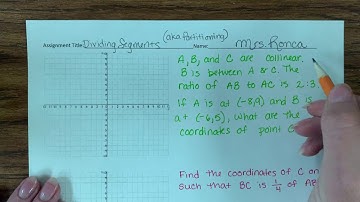 (aka Partitioning)
Assignment Title: Dividing Segments Name: Mrs. Ronca
A, B, and C are collinear.
B is between A & C. The
ratio of AB to AC is 2:3.
If A is at (-8,9) and B is
at (-6,5), what are the
coordinates of point C
Find the coordinates of C on
such that BC is 1/4 of AB